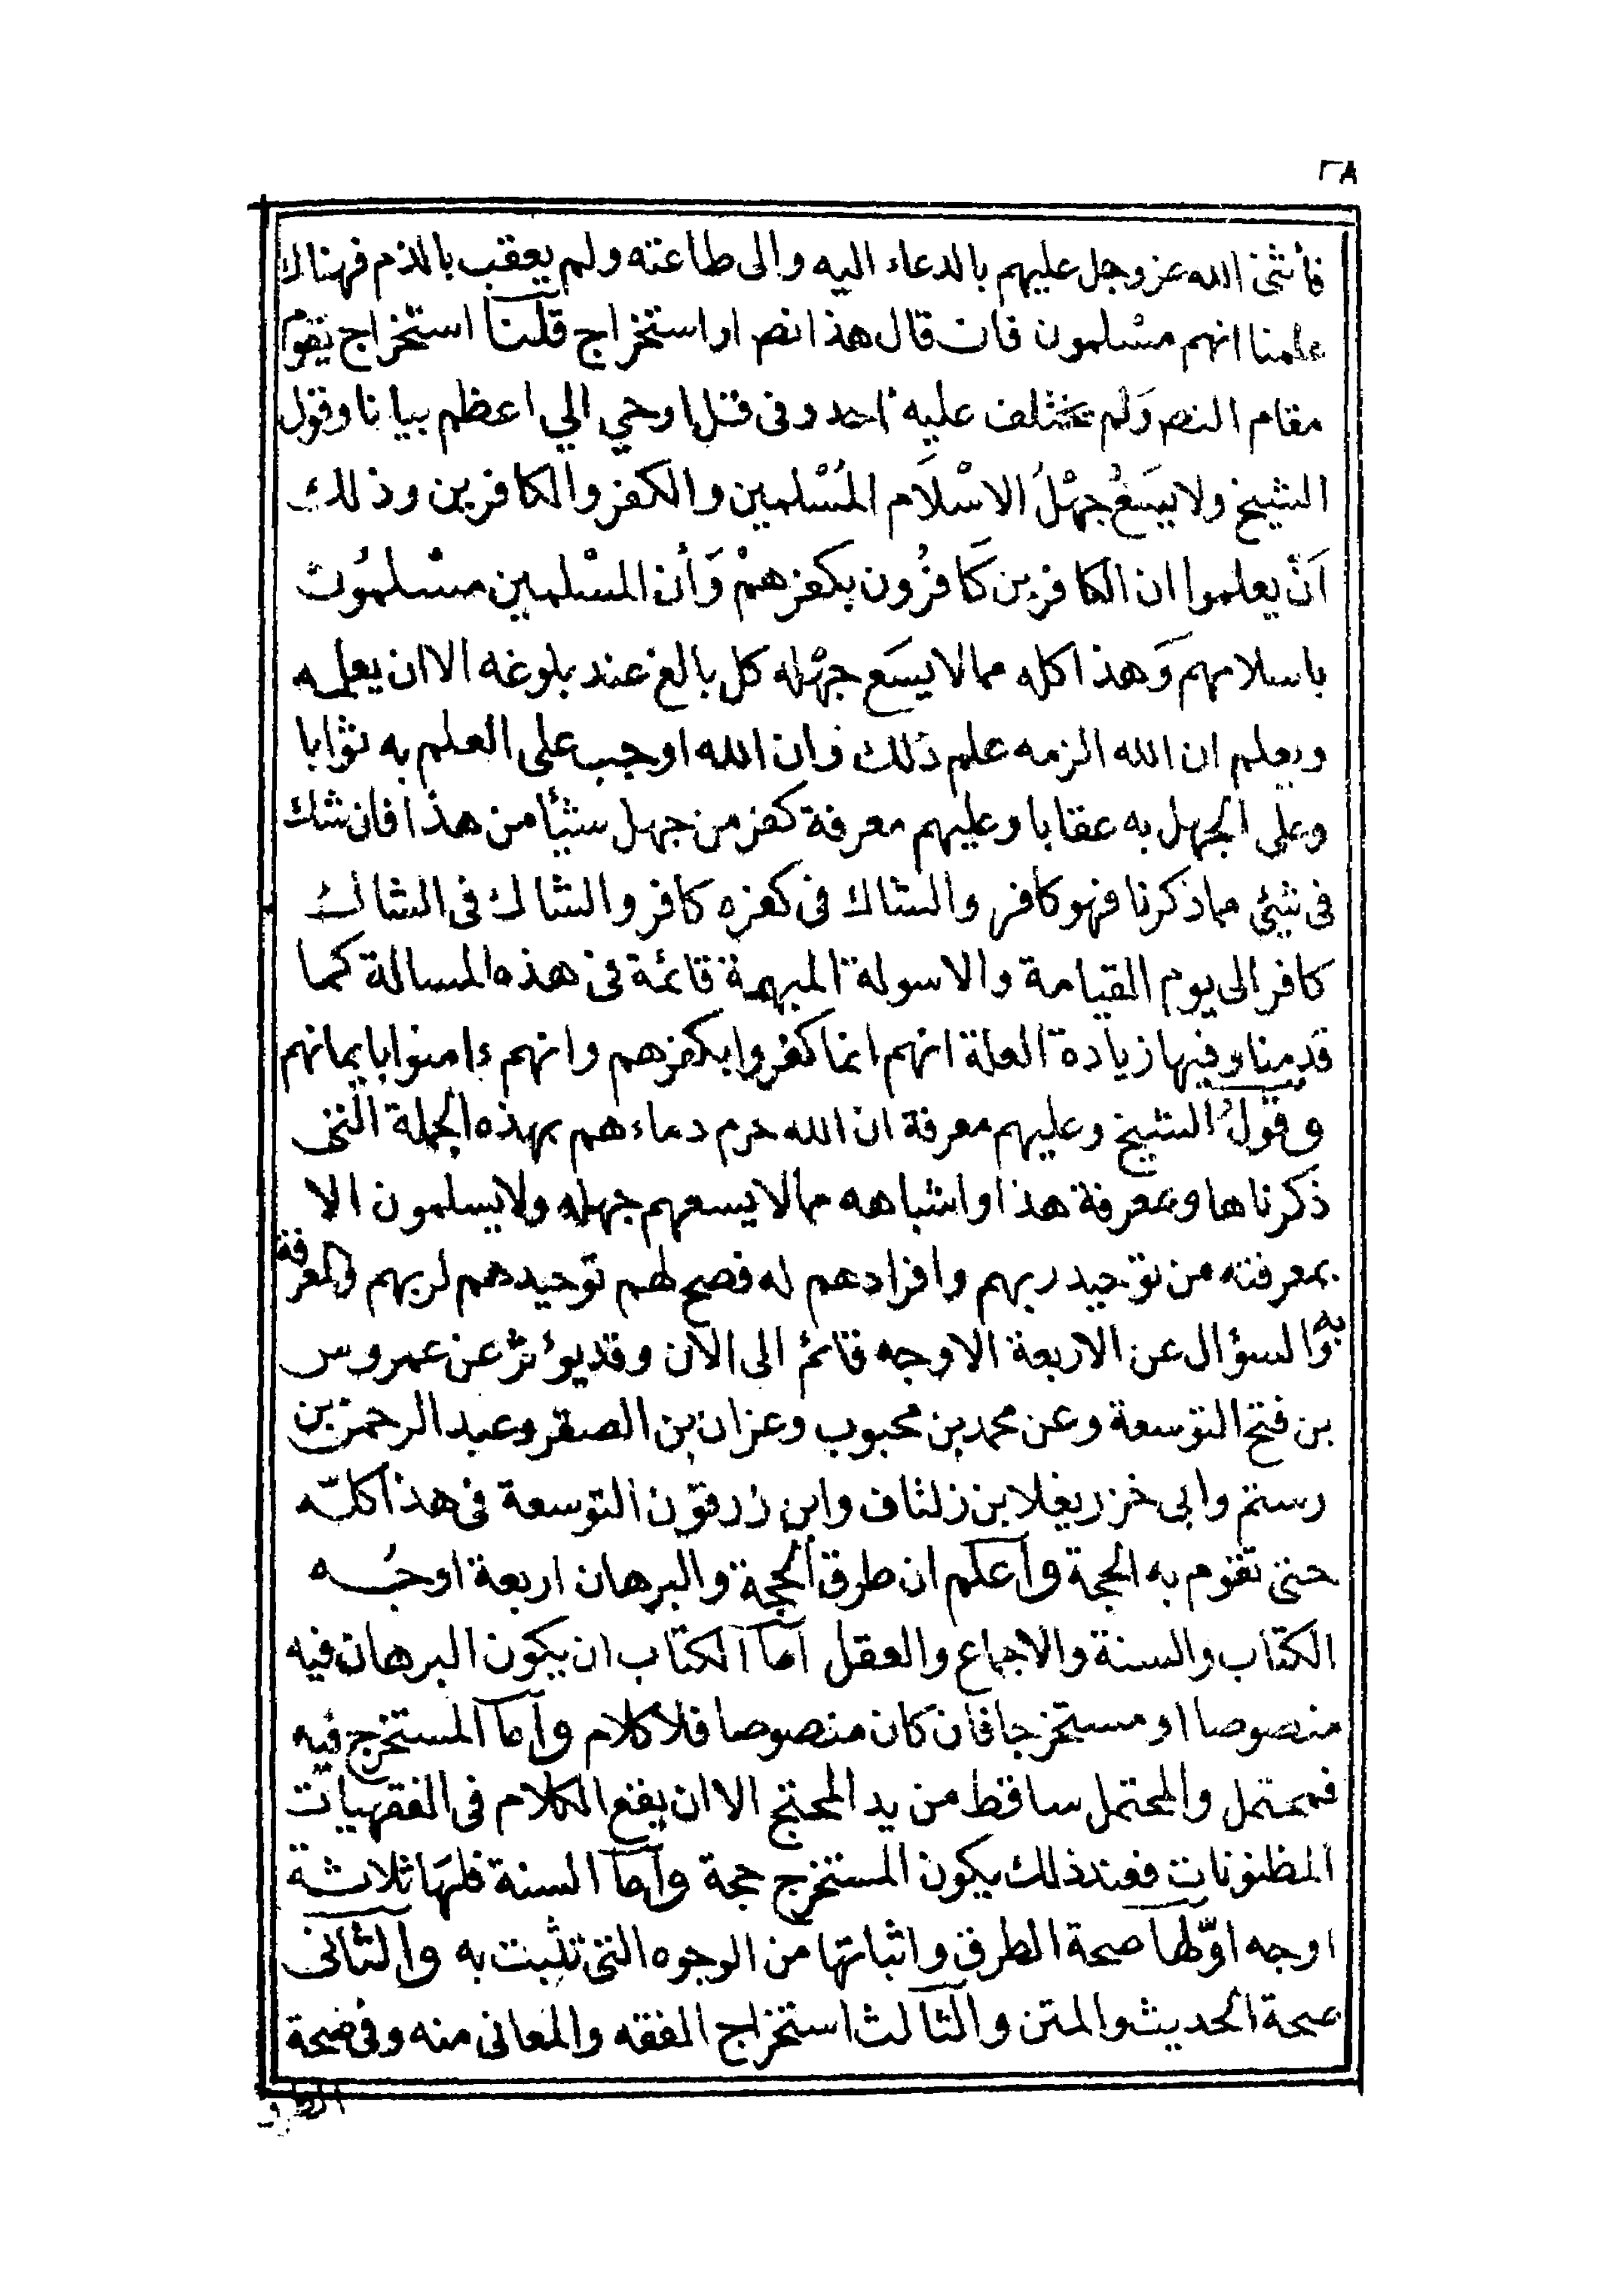 ٢٨
فأثنى الله عز وجل عليهم بالدعاء اليه والى طاعته ولم يعقب بالذم فهناك
علمنا انهم مسْلمون فان قال هذا نص او استخراج قلنا استخراج يقوم
مقام النص وَلم يختلف عليه احد وفى قل اوحي الي اعظم بيانا وقول
الشيخ ولا يسَعُ جهْلُ الاسْلَام المُسْلمين والكفر والكافرين وذلك
اَنْ يعلموا ان الكافرين كَافرُون بكفرهمْ وَأن المسْلمين مسْلمُون
باسلامهم وَهذا كله مما لا يسَع جهْله كل بالغ عند بلوغه الا ان يعلمه
ويعلم ان الله الزمه علم ذلك وان الله اوجب على العلم به ثوابا
وعلى الجهل به عقابا وعليهم معرفة كفر من جهل شيأ من هذا فان شك
فى شيئ مما ذكرنا فهو كافر والشاك فى كفره كافر والشاك فى الشاك
كافر الى يوم القيامة والاسولة المبهمة قائمة فى هذه المسالة كما
قدمنا وفيها زيادة العلة انهم انما كفروا بكفرهم وانهم ءامنوا بايمانهم
وقولُ الشيخ وعليهم معرفة ان الله حرم دماءهم بهذه الجملة التى
ذكرناها ومعرفة هذا واشباهه مما لا يسعهم جهله ولا يسلمون الا
بمعرفته من توحيد ربهم وافرادهم له فصح لهم توحيدهم لربهم والمعرفة
به والسؤال عن الاربعة الاوجه قائم الى الان وقد يؤثر عن عمروس
بن فتح التوسعة وعن محمد بن محبوب وعزان بن الصقر وعبد الرحمن بن
رستم وابى خزر يغلا بن زلتاف وابن زرقون التوسعة فى هذا كلّه
حتى تقوم به الحجة واعلم ان طرق الحجة والبرهان اربعة اوجُه
الكتاب والسنة والاجماع والعقل اما الكتاب ان يكون البرهان فيه
منصوصا او مستخرجا فان كان منصوصا فلا كلام واما المستخرج فيه
فمحتمل والمحتمل ساقط من يد المحتج الا ان يقع الكلام فى الفقهيات
المظنونات فعند ذلك يكون المستخرج حجة واما السنة فلهَا ثلاثة
اوجه اوّلها صحة الطرق واثباتها من الوجوه التى تثبت به والثانى
صحة الحديث والمتن والثالث استخراج الفقه والمعانى منه وفى صحة
الطرق